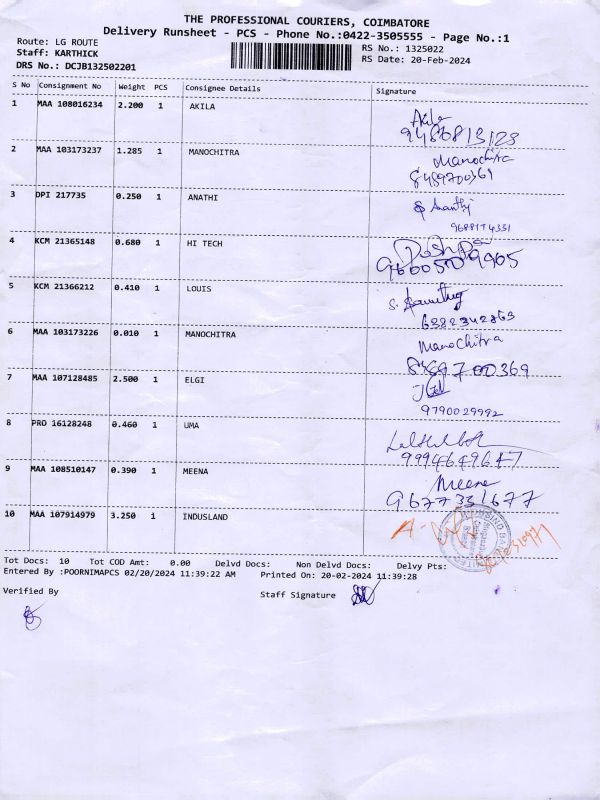 THE PROFESSIONAL COURIERS, COIMBATORE
Delivery Runsheet - PCS - Phone No.:0422-3505555 - Page No.:1
Route: LG ROUTE
RS No.: 1325022
Staff: KARTHICK
RS Date: 20-Feb-2024
DRS No.: DCJB132502201
S No Consignment No Weight PCS Consignee Details Signature
1 MAA 108016234 2.200 1 AKILA
Akila
9486813123
2 MAA 103173237 1.285 1 MANOCHITRA
Manochitra
8489700369
3 DPI 217735 0.250 1 ANATHI
Ananthi
9688174331
4 KCM 21365148 0.680 1 HI TECH
5 KCM 21366212 0.410 1 LOUIS
6382342863
6 MAA 103173226 0.010 1 MANOCHITRA
ManoChitra
8489700369
7 MAA 107128485 2.500 1 ELGI
9790029992
8 PRO 16128248 0.460 1 UMA
9994649647
9 MAA 108510147 0.390 1 MEENA
Meena
9677331677
10 MAA 107914979 3.250 1 INDUSLAND
Tot Docs: 10 Tot COD Amt: 0.00 Delvd Docs: Non Delvd Docs: Delvy Pts:
Entered By :POORNIMAPCS 02/20/2024 11:39:22 AM Printed On: 20-02-2024 11:39:28
Verified By
Staff Signature